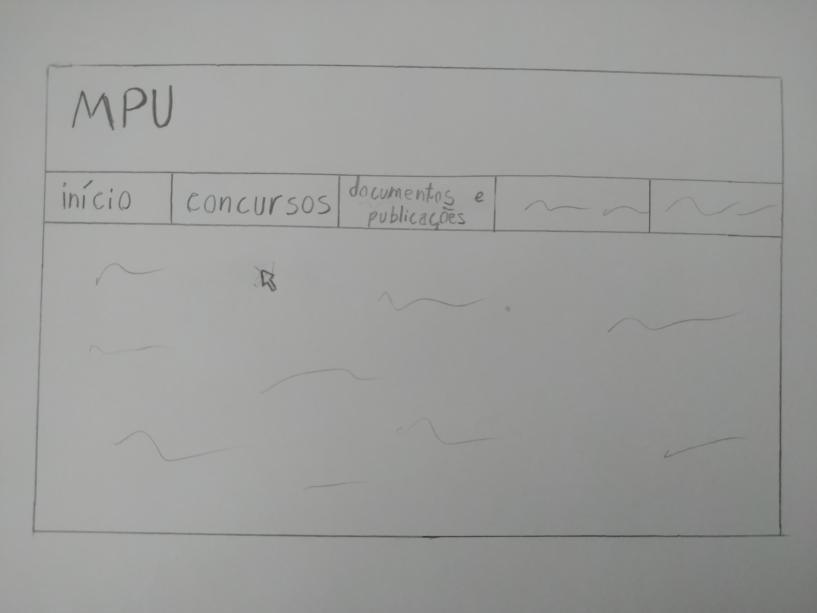 MPU
início
concursos
documentos e
publicações